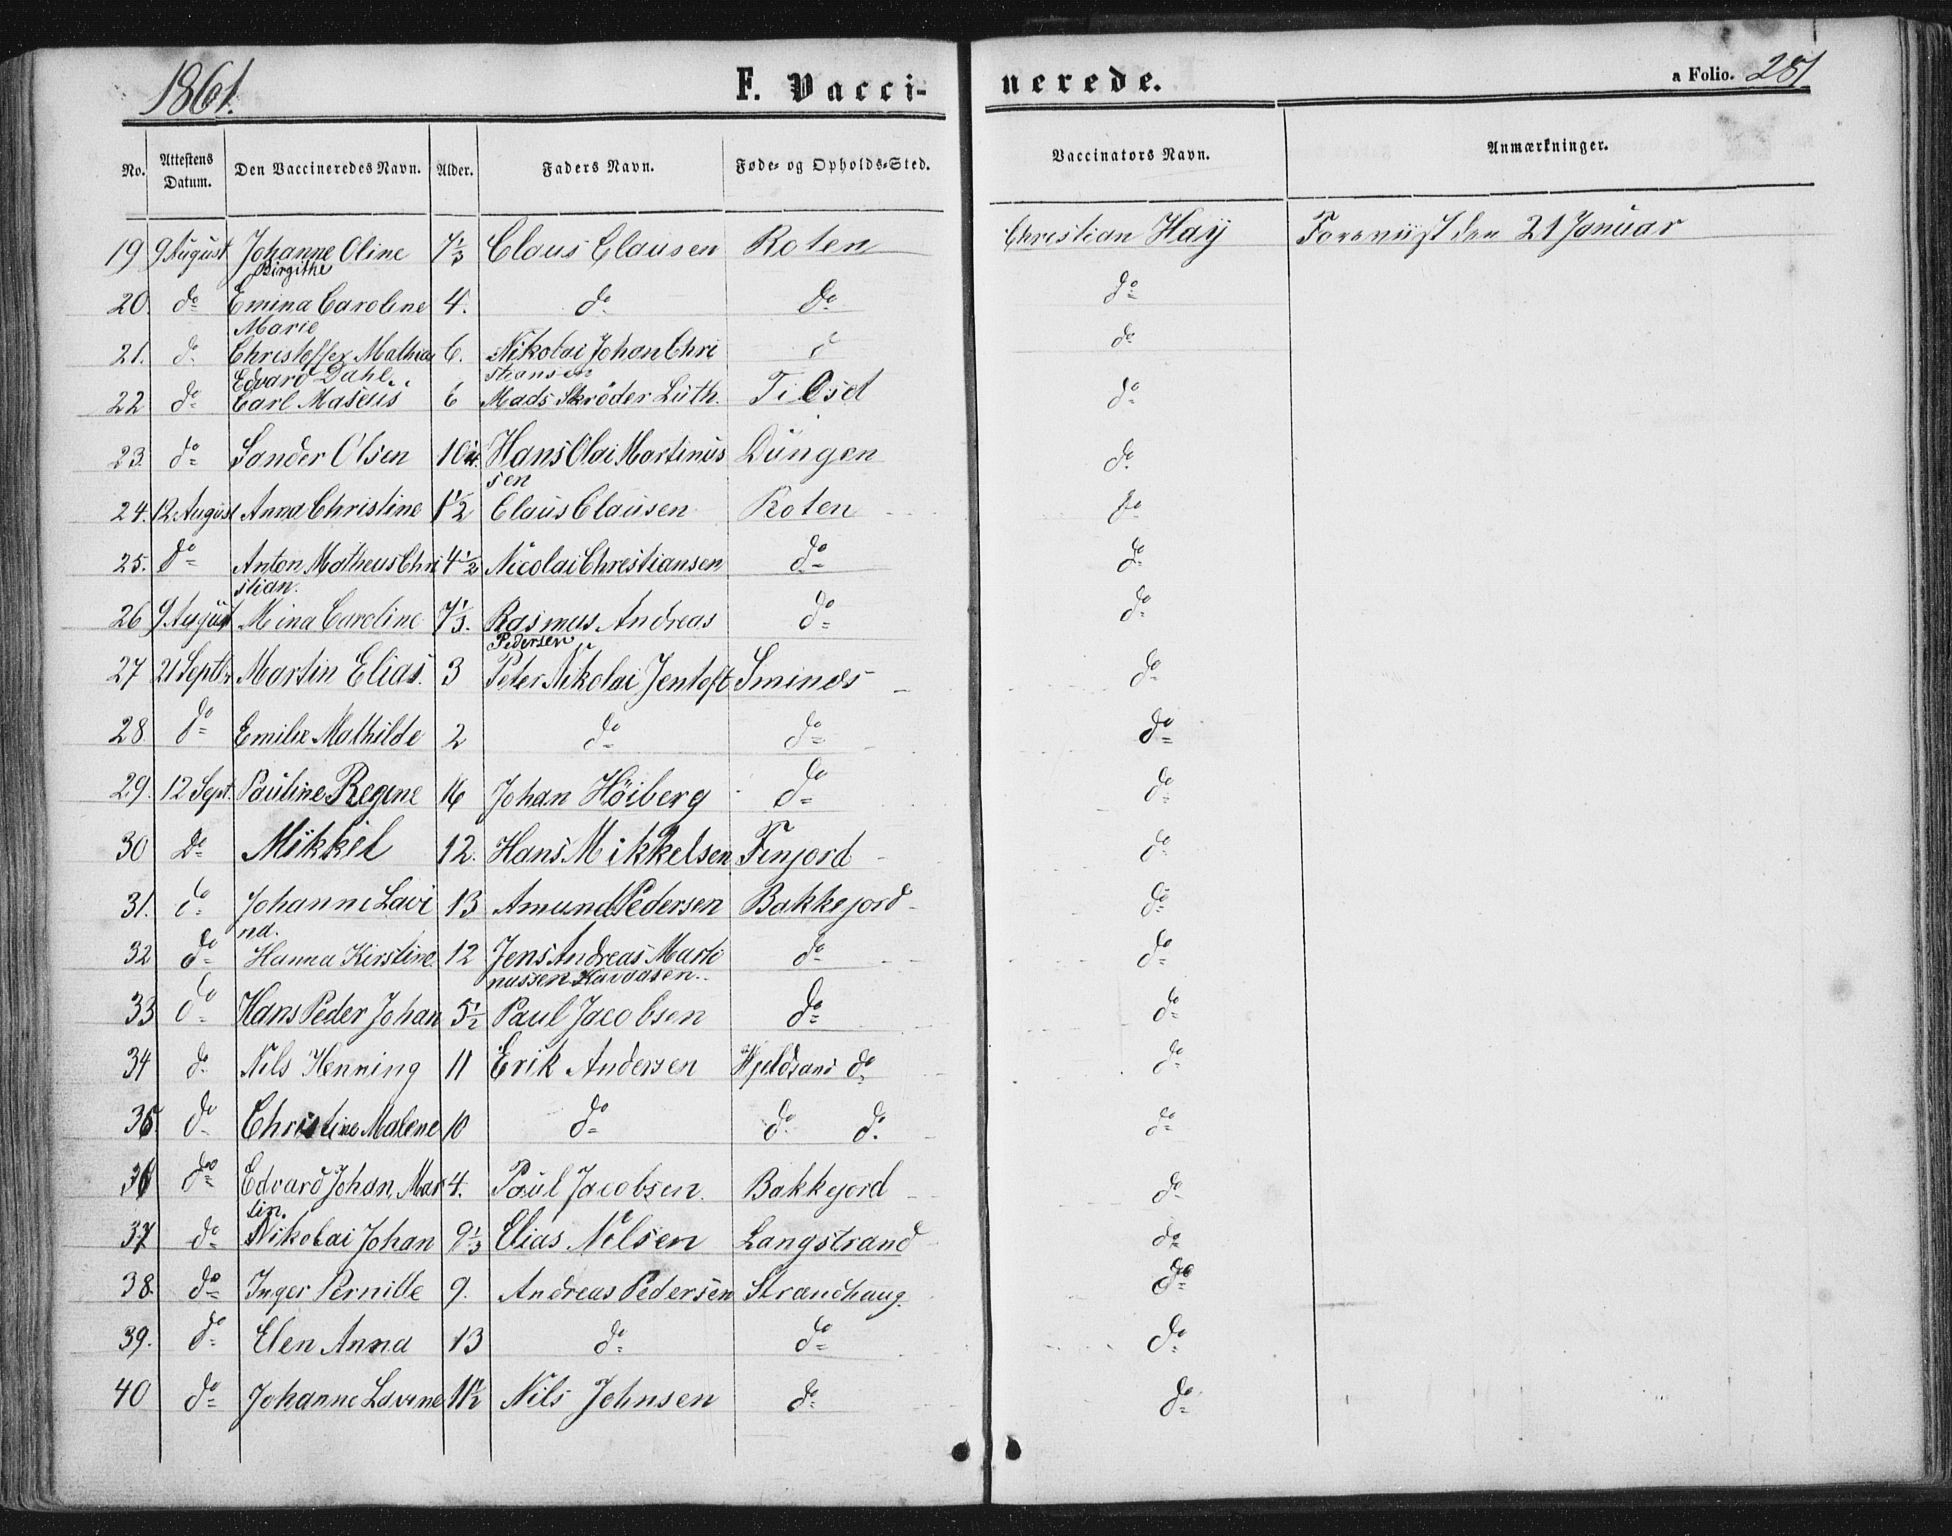 1861.
F. Vacci-
nerede.
a Folio. 281
No. Attestens Datum. Den Vaccineredes Navn. Alder. Faders Navn. Føde- og Opholds-Sted. Vaccinators Navn. Anmærkninger.
19 9 August Johanne Oline 7⅓ Claus Clausen Roten Christian Hay Foreviist den 21 Januar
Birgithe
20. do Emina Caroline 4. do do do
Marie
21. do Christoffer Mathias 6. Nikolai Johan Chri do do
Edvard Dahl stiansen
22 do Carl Maseus 6 Mads Skrøder Luth. Tilset do
23. do Sander Olsen 10¼ Hans Olai Martinus Dungen do
sen
24. 12 August Anna Christine 1½ Claus Clausen Roten do
25. do Anton Matheus Chri 4½ Nicolai Christiansen do do
stian.
26 9 August Mina Caroline 7⅓. Rasmus Andreas do do
Pedersen
27 21 Septbr Martin Elias. 3 Peter Nikolai Jentoft Sminds do
28. do Emilie Mathilde 2 do do do
29. 12 Sept. Pauline Regine 16 Johan Höiberg do do
30 do Mikkel 12. Hans Mikkelsen Finjord do
31. do Johanne Lavi 13 Amund Pedersen Bakkejord do
na.
32 do Hanna Kirstine 12 Jens Andreas Marti do do
nussen
33 do Hans Peder Johan 5½ Paul Jacobsen do do
34 do Nils Henning 11 Erik Andersen do do
35 do Christine Malene 10 do do do. do
36 do Edvard Johan Mar 4. Paul Jacobsen. Bakkejord do
tin.
37 do Nikolai Johan 9⅓ Elias Nilsen Langstrand do
38. do Inger Pernille 9. Andreas Pedersen Strandhaug. do
39. do Elen Anna 13 do do do
40 do Johanne Lavine 11½ Nils Johnsen do do